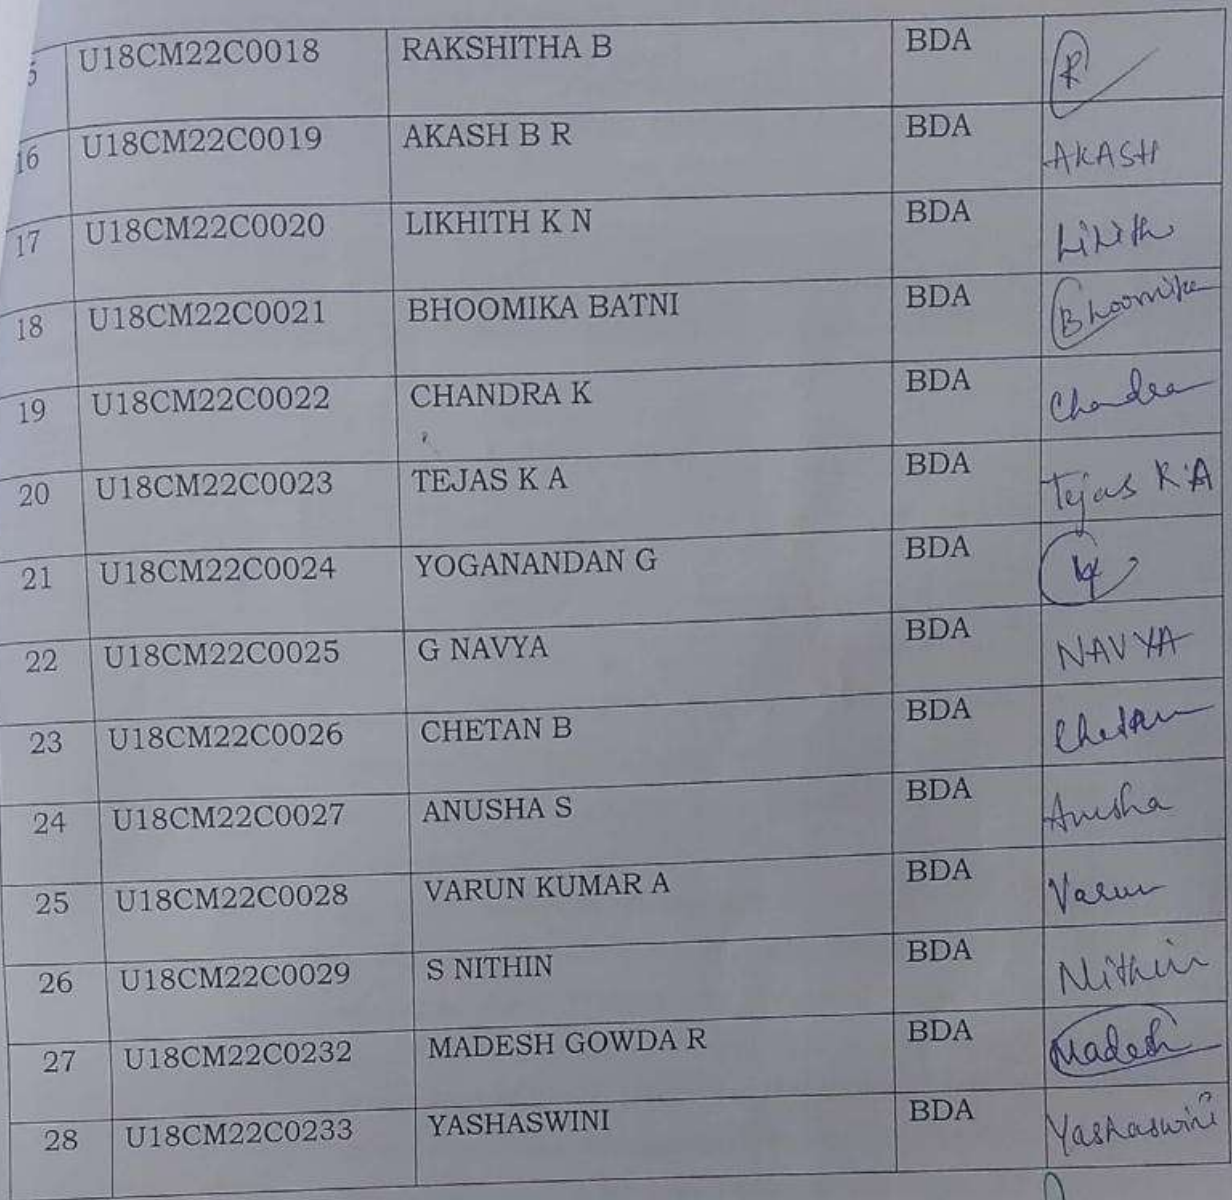 5 U18CM22C0018 RAKSHITHA B BDA R
16 U18CM22C0019 AKASH B R BDA AKASH
17 U18CM22C0020 LIKHITH K N BDA
18 U18CM22C0021 BHOOMIKA BATNI BDA Bhoomika
19 U18CM22C0022 CHANDRA K BDA Chandra
20 U18CM22C0023 TEJAS K A BDA Tejas K A
21 U18CM22C0024 YOGANANDAN G BDA
22 U18CM22C0025 G NAVYA BDA NAVYA
23 U18CM22C0026 CHETAN B BDA Chetan
24 U18CM22C0027 ANUSHA S BDA Anusha
25 U18CM22C0028 VARUN KUMAR A BDA Varun
26 U18CM22C0029 S NITHIN BDA Nithin
27 U18CM22C0232 MADESH GOWDA R BDA Madesh
28 U18CM22C0233 YASHASWINI BDA Yashaswini